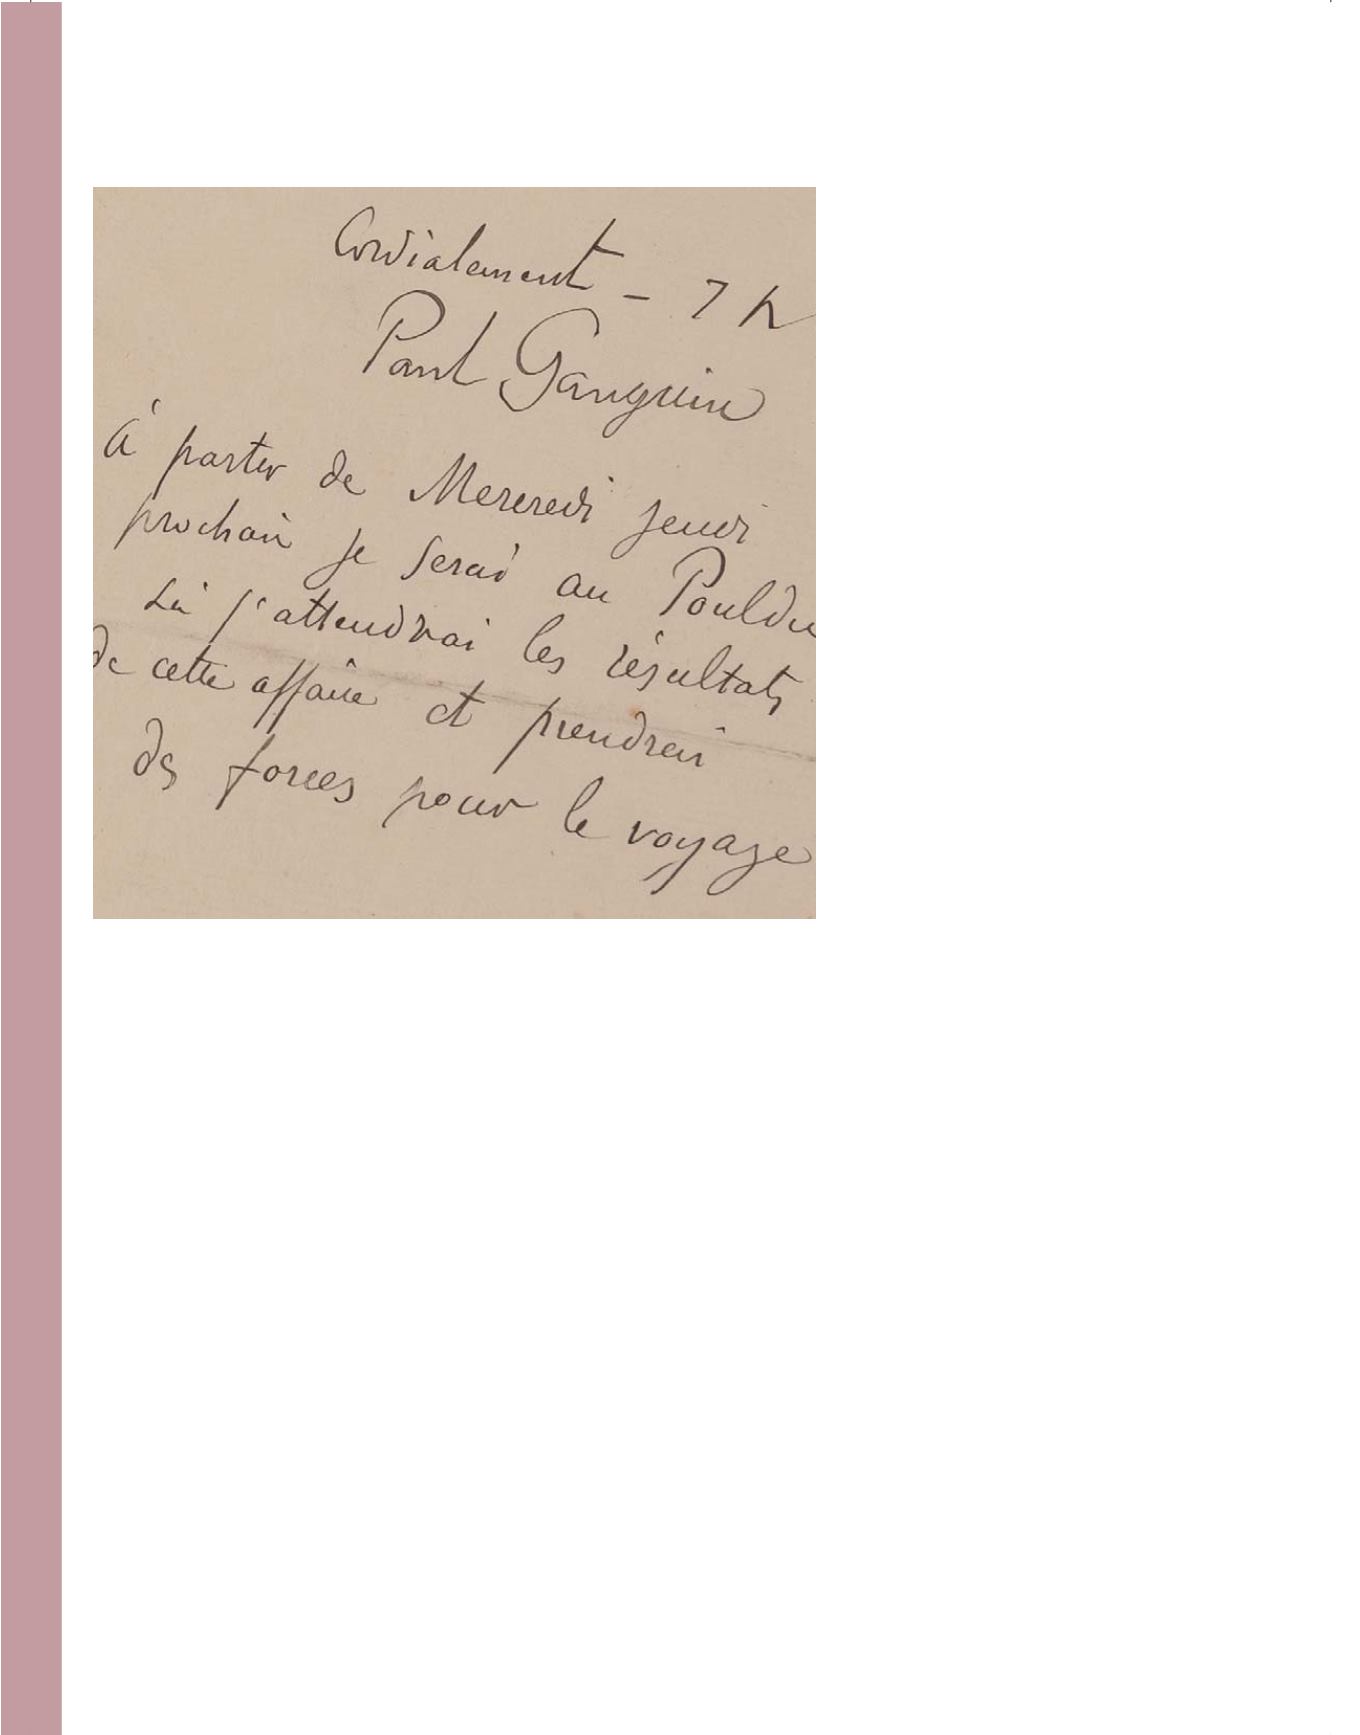 Cordialement – 7 h
Paul Gauguin
à partir de Mercredi jeudi
prochain je serai au Pouldu
Là j'attendrai les résultats
de cette affaire et prendrai
des forces pour le voyage